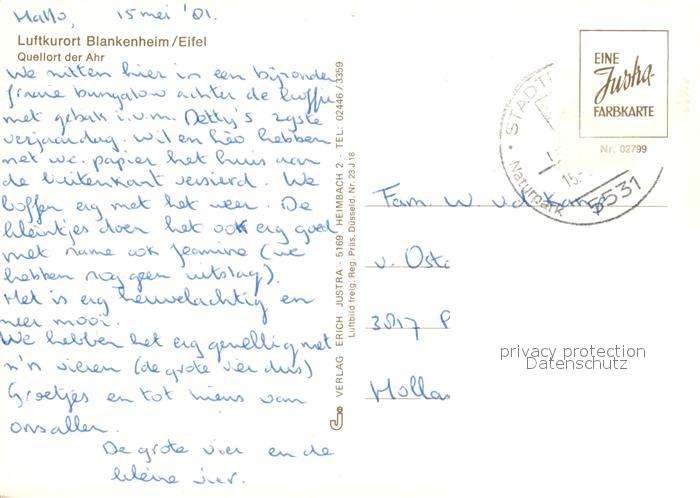 Hallo, 15 mei '81.
Luftkurort Blankenheim/Eifel
Quellort der Ahr
We zitten hier in een bijzonder
fraaie bungalow achter de koffie
met gebak i.v.m. Detty's 29ste
verjaardag. Wil en Léo hebben
met wc. papier het huis aan
de buitenkant versierd. We
boffen erg met het weer. De
kleintjes doen het ook erg goed
met name ook Jeannine (we
hebben nog geen uitslag).
Het is erg heuvelachtig en
zeer mooi.
We hebben het erg gezellig met
z'n vieren (de grote vier dus)
Groetjes en tot ziens van
ons allen.
De grote vier en de
kleine vier.
VERLAG ERICH JUSTRA - 5169 HEIMBACH 2 - TEL: 02446/3359
Luftbild freig. Reg. Präs. Düsseld. Nr. 23 J 18
EINE
Justra-
FARBKARTE
Nr. 02799
STADT
15.
Naturpark
5531
Fam W
v. Oste
3817 P
Hollan
privacy protection
Datenschutz